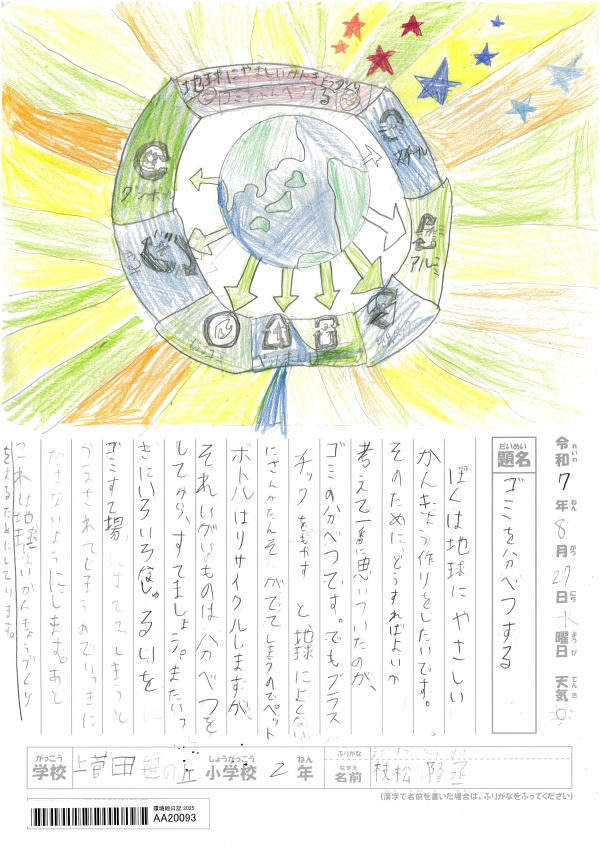 地球にやさしいかんきょうづくり
ダンボール
スチール
アルミ
令和7年8月27日水曜日 天気
れいわ ねん がつ にち ようび てんき
だいめい
題名
ゴミを分べつする
ぼくは地球にやさしい
かんきょう作りをしたいです。
そのために、どうすればよいか
考えて一番に思いついたのが、
ゴミの分べつです。でもプラス
チックをもやすと地球によくない
にさんかたんそがでてしまうのでペット
ボトルはリサイクルしますが、
それいがいのものは分べつを
してから、すてましょう。またいっ
きにいろいろなしゅるいを
ゴミすて場にすててしまうと
かさされてしまうのでいっきに
ださないようにします。あと
これは地球によいかんきょうづくり
をするためにしています。
がっこう しょうがっこう ねん ふりがな
学校 上菅田笹の丘 小学校 2年 なまえ 名前 枝松隆丞
(漢字で名前を書いた場合は、ふりがなをふってください)
環境絵日記 2025
AA20093